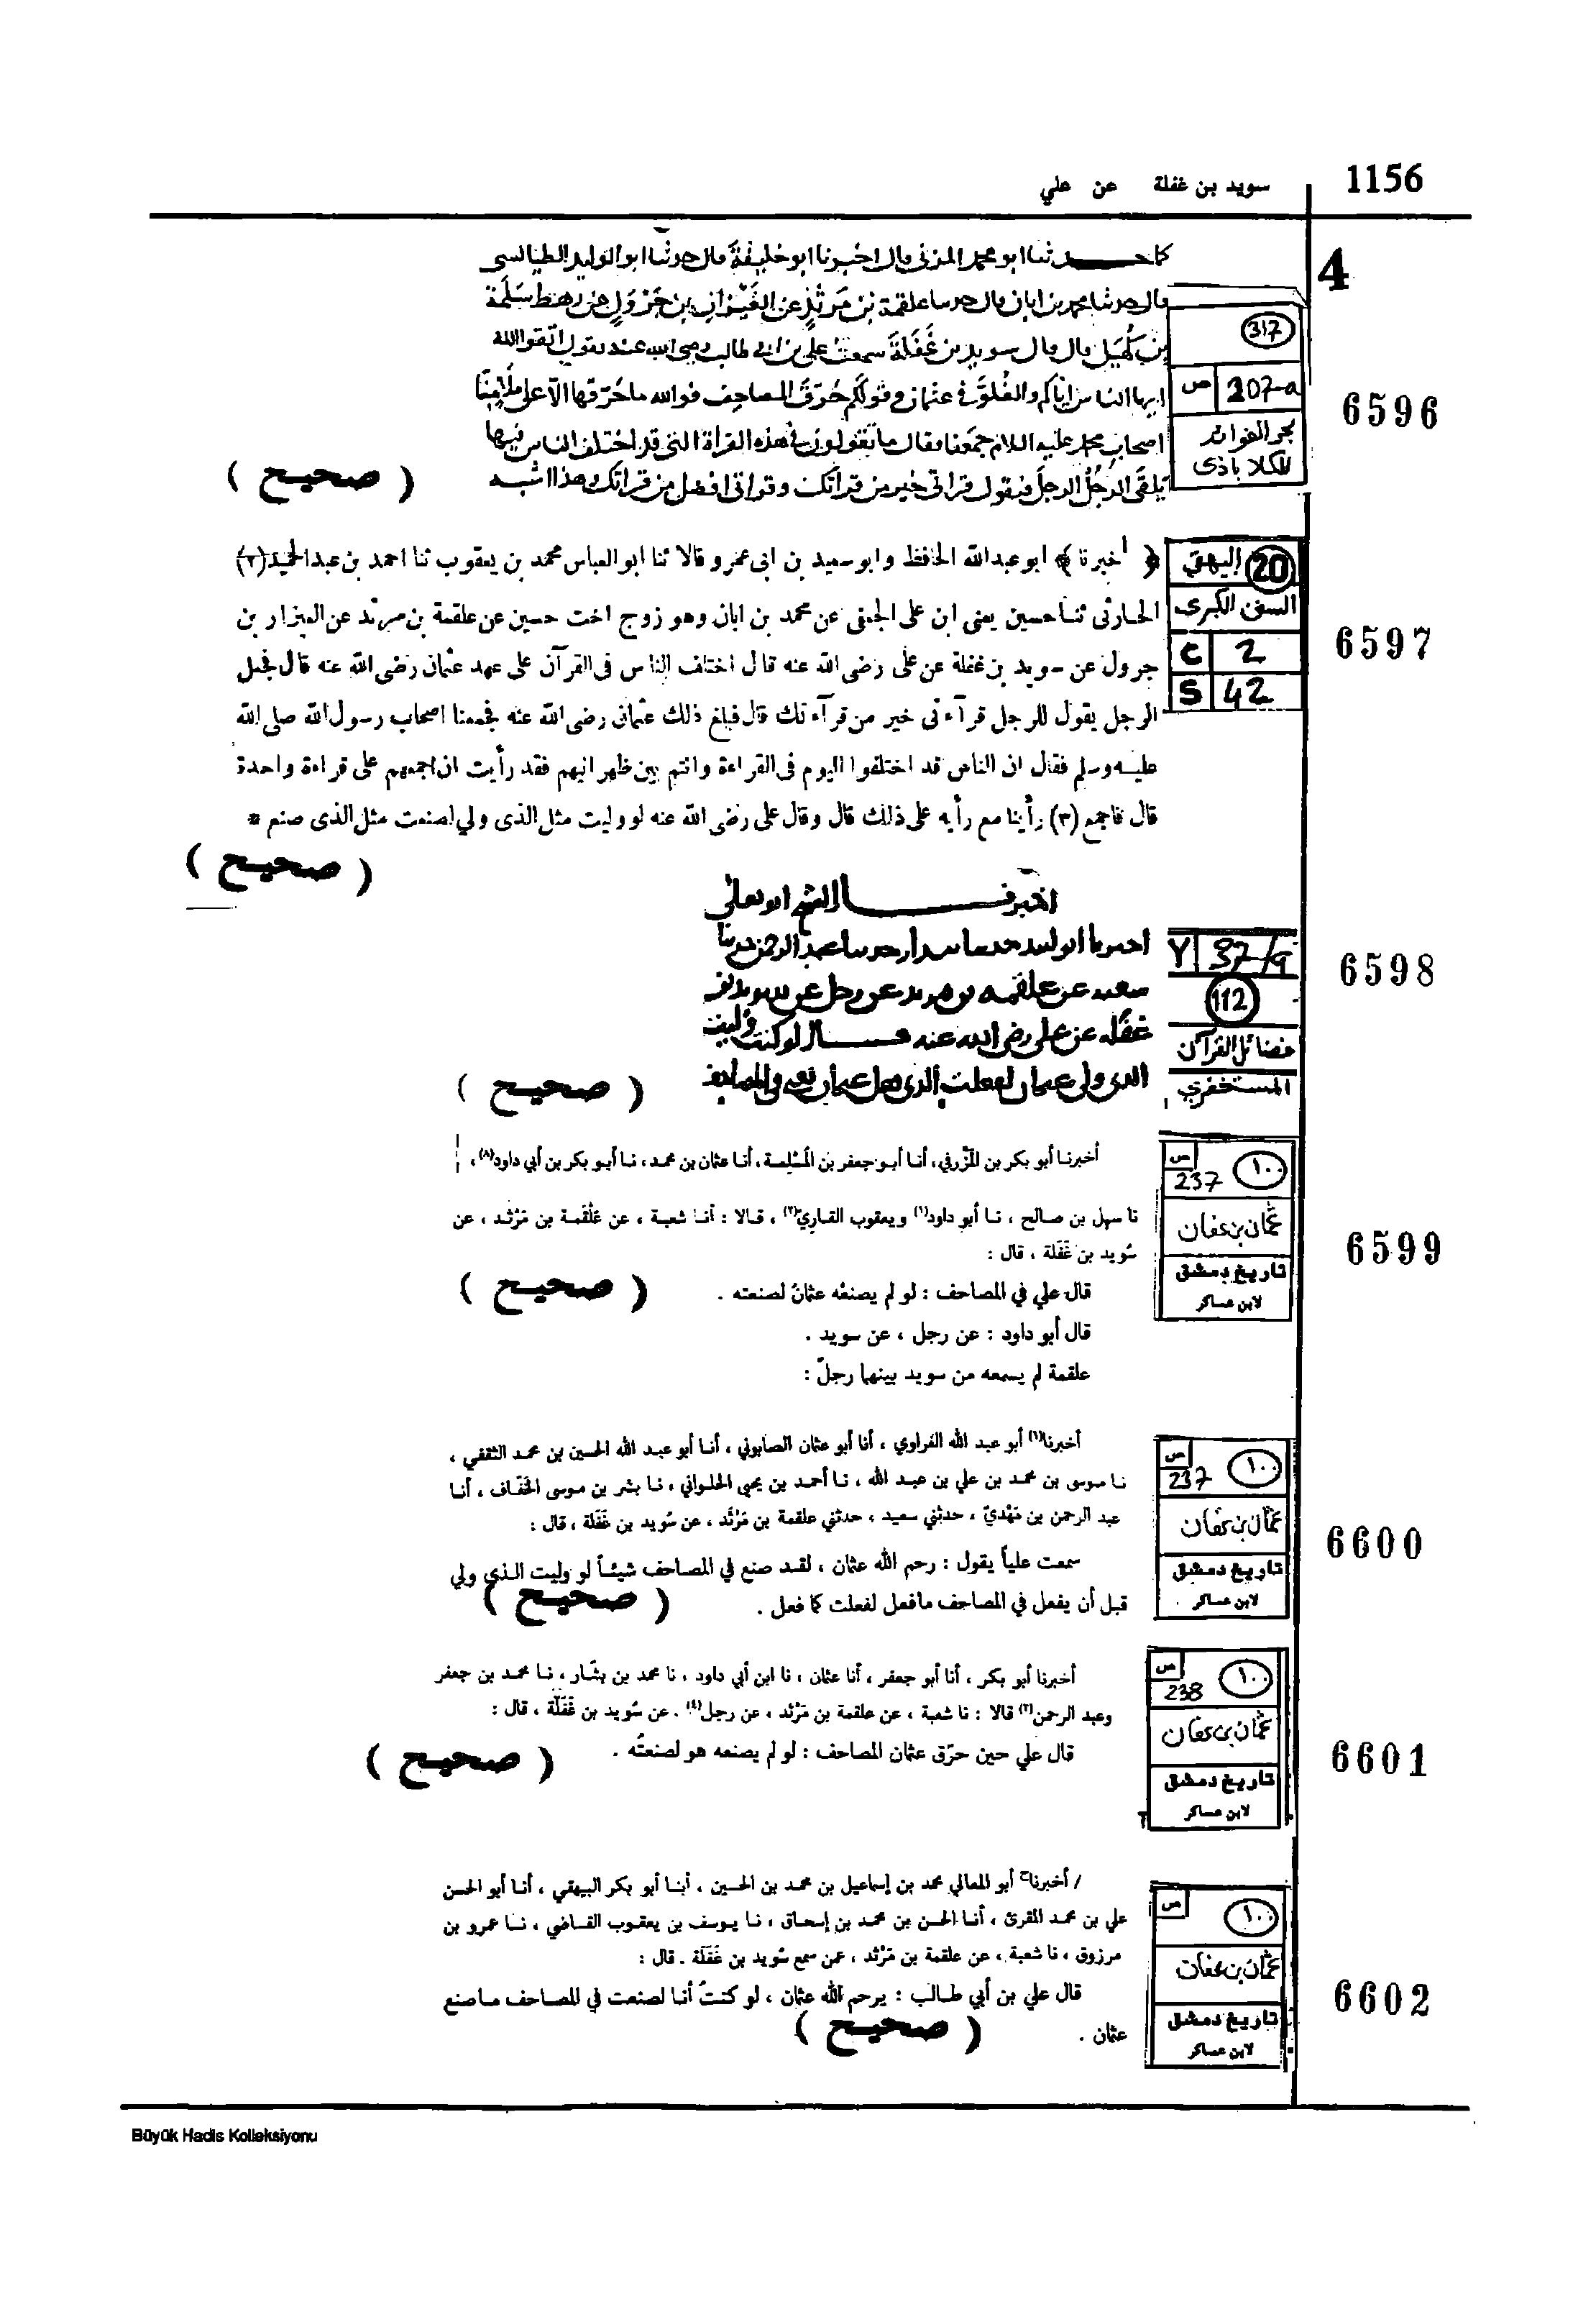 1156
سويد بن غفلة عن علي
4
كما حدثنا ابو محمد المزني قال اخبرنا ابو خليفة قال حدثنا ابو الوليد الطيالسى
قال حدثنا محمد بن ابان قال حدثنا علقمة بن مَرثَدٍ عن العَيْزار بن جَرْوَلٍ من رهط سَلَمة
بن كُهَيل قال قال سويد بن غَفَلَةَ سمعت على بن ابى طالب رضى الله عنه يقول اتقوا الله
ايها الناس اياكم والغُلوَّ فى عثمان وقولكم حُرّقَ المصاحف فوالله ما حُرّقها الا على ملأٍ مِنّا
اصحاب محمد عليه السلام جَمَعَنا وقال ما تقولون فى هذه القراة التى قد اختلف الناس فيها
يَلقَى الرجُلُ الرجلَ فيقول قراتى خير من قراتك وقراتى افضل من قراتك وهذا اشبه
( صحيح )
317
ص 207-a
بحر الفوائد
للكلاباذى
6596
﴿ أخبرنا ﴾ ابو عبدالله الحافظ وابوسعيد بن ابى عمرو قالا ثنا ابوالعباس محمد بن يعقوب ثنا احمد بن عبدالحميد (٢)
الحارثى ثنا حسين يعنى ابن على الجعفى عن محمد بن ابان وهو زوج اخت حسين عن علقمة بن مرثد عن العيزار بن
جرول عن سويد بن غفلة عن على رضى الله عنه قال اختلف الناس فى القرآن على عهد عثمان رضى الله عنه قال فجعل
الرجل يقول للرجل قرآءتى خير من قرآءتك قال فبلغ ذلك عثمان رضى الله عنه فجمعنا اصحاب رسول الله صلى الله
عليه وسلم فقال ان الناس قد اختلفوا اليوم فى القراءة وانتم بين ظهرانيهم فقد رأيت ان اجمعهم على قراءة واحدة
قال فاجمع (٣) رأينا مع رأيه على ذلك قال وقال على رضى الله عنه لو وليت مثل الذى ولي لصنعت مثل الذى صنع *
( صحيح )
20 البيهقي
السنن الكبرى
C 2
S 42
6597
اخبرنا الشيخ ابو يعلى
اخبرنا ابو لبيد حدثنا بندار حدثنا عبد الرحمن حدثنا
علقمه بن مرثد عن رجل عن سويد بن
غفلة عن على رضى الله عنه قال لو كنت وليت
الذى ولى عثمان لفعلت الذى فعل عثمان المصاحف
( صحيح )
Y 37/a
112
فضائل القرآن
المستغفري
6598
أخبرنا أبو بكر بن المَزْرفي، أنا أبو جعفر بن المُسْلمة، أنا عثمان بن محمد، نا أبو بكر بن أبي داود(٨)،
نا سهل بن صالح ، نا أبو داود(١) ويعقوب القاريّ(٢) ، قالا : أنا شعبة ، عن عَلْقمة بن مَرْثد ، عن
سُويد بن غَفَلة ، قال :
قال علي في المصاحف : لو لم يصنعْه عثمانُ لصنعته .
( صحيح )
قال أبو داود : عن رجل ، عن سويد .
علقمة لم يسمعه من سويد بينهما رجلٌ :
ص 237 ١٠٠
عثمان بن عفان
تاريخ دمشق
لابن عساكر
6599
أخبرنا(١) أبو عبد الله الفراوي ، أنا أبو عثمان الصابوني ، أنا أبو عبد الله الحسين بن محمد الثقفي ،
نا موسى بن محمد بن علي بن عبد الله ، نا أحمد بن يحيى الحلواني ، نا بشر بن موسى الخفّاف ، أنا
عبد الرحمن بن مَهْديّ ، حدثني سعيد ، حدثني علقمة بن مَرْثَد ، عن سُويد بن غَفَلة ، قال :
سمعت علياً يقول : رحم الله عثمان ، لقد صنع في المصاحف شيئاً لو وليت الذي ولي
قبل أن يفعل في المصاحف مافعل لفعلت كما فعل .
( صحيح )
ص 237 ١٠٠
عثمان بن عفان
تاريخ دمشق
لابن عساكر
6600
أخبرنا أبو بكر ، أنا أبو جعفر ، أنا عثمان ، نا ابن أبي داود ، نا محمد بن بشّار ، نا محمد بن جعفر
وعبد الرحمن(٣) قالا : نا شعبة ، عن علقمة بن مَرْثد ، عن رجل(٤) . عن سُويد بن غَفَلَة ، قال :
قال علي حين حرّق عثمان المصاحف : لو لم يصنعه هو لصنعتُه .
( صحيح )
ص 238 ١٠٠
عثمان بن عفان
تاريخ دمشق
لابن عساكر
6601
/ أخبرنا أبو المعالي محمد بن إسماعيل بن محمد بن الحسين ، أبنا أبو بكر البيهقي ، أنا أبو الحسن
علي بن محمد المقرئ ، أنا الحسن بن محمد بن إسحاق ، نا يوسف بن يعقوب القاضي ، نا عمرو بن
مرزوق ، نا شعبة ، عن علقمة بن مَرْثد ، عمن سمع سُويد بن غَفَلَة . قال :
قال علي بن أبي طالب : يرحم الله عثمان ، لو كنتُ أنا لصنعت في المصاحف ماصنع
عثمان .
( صحيح )
ص ١٠٠
عثمان بن عفان
تاريخ دمشق
لابن عساكر
6602
Büyük Hadis Kolleksiyonu